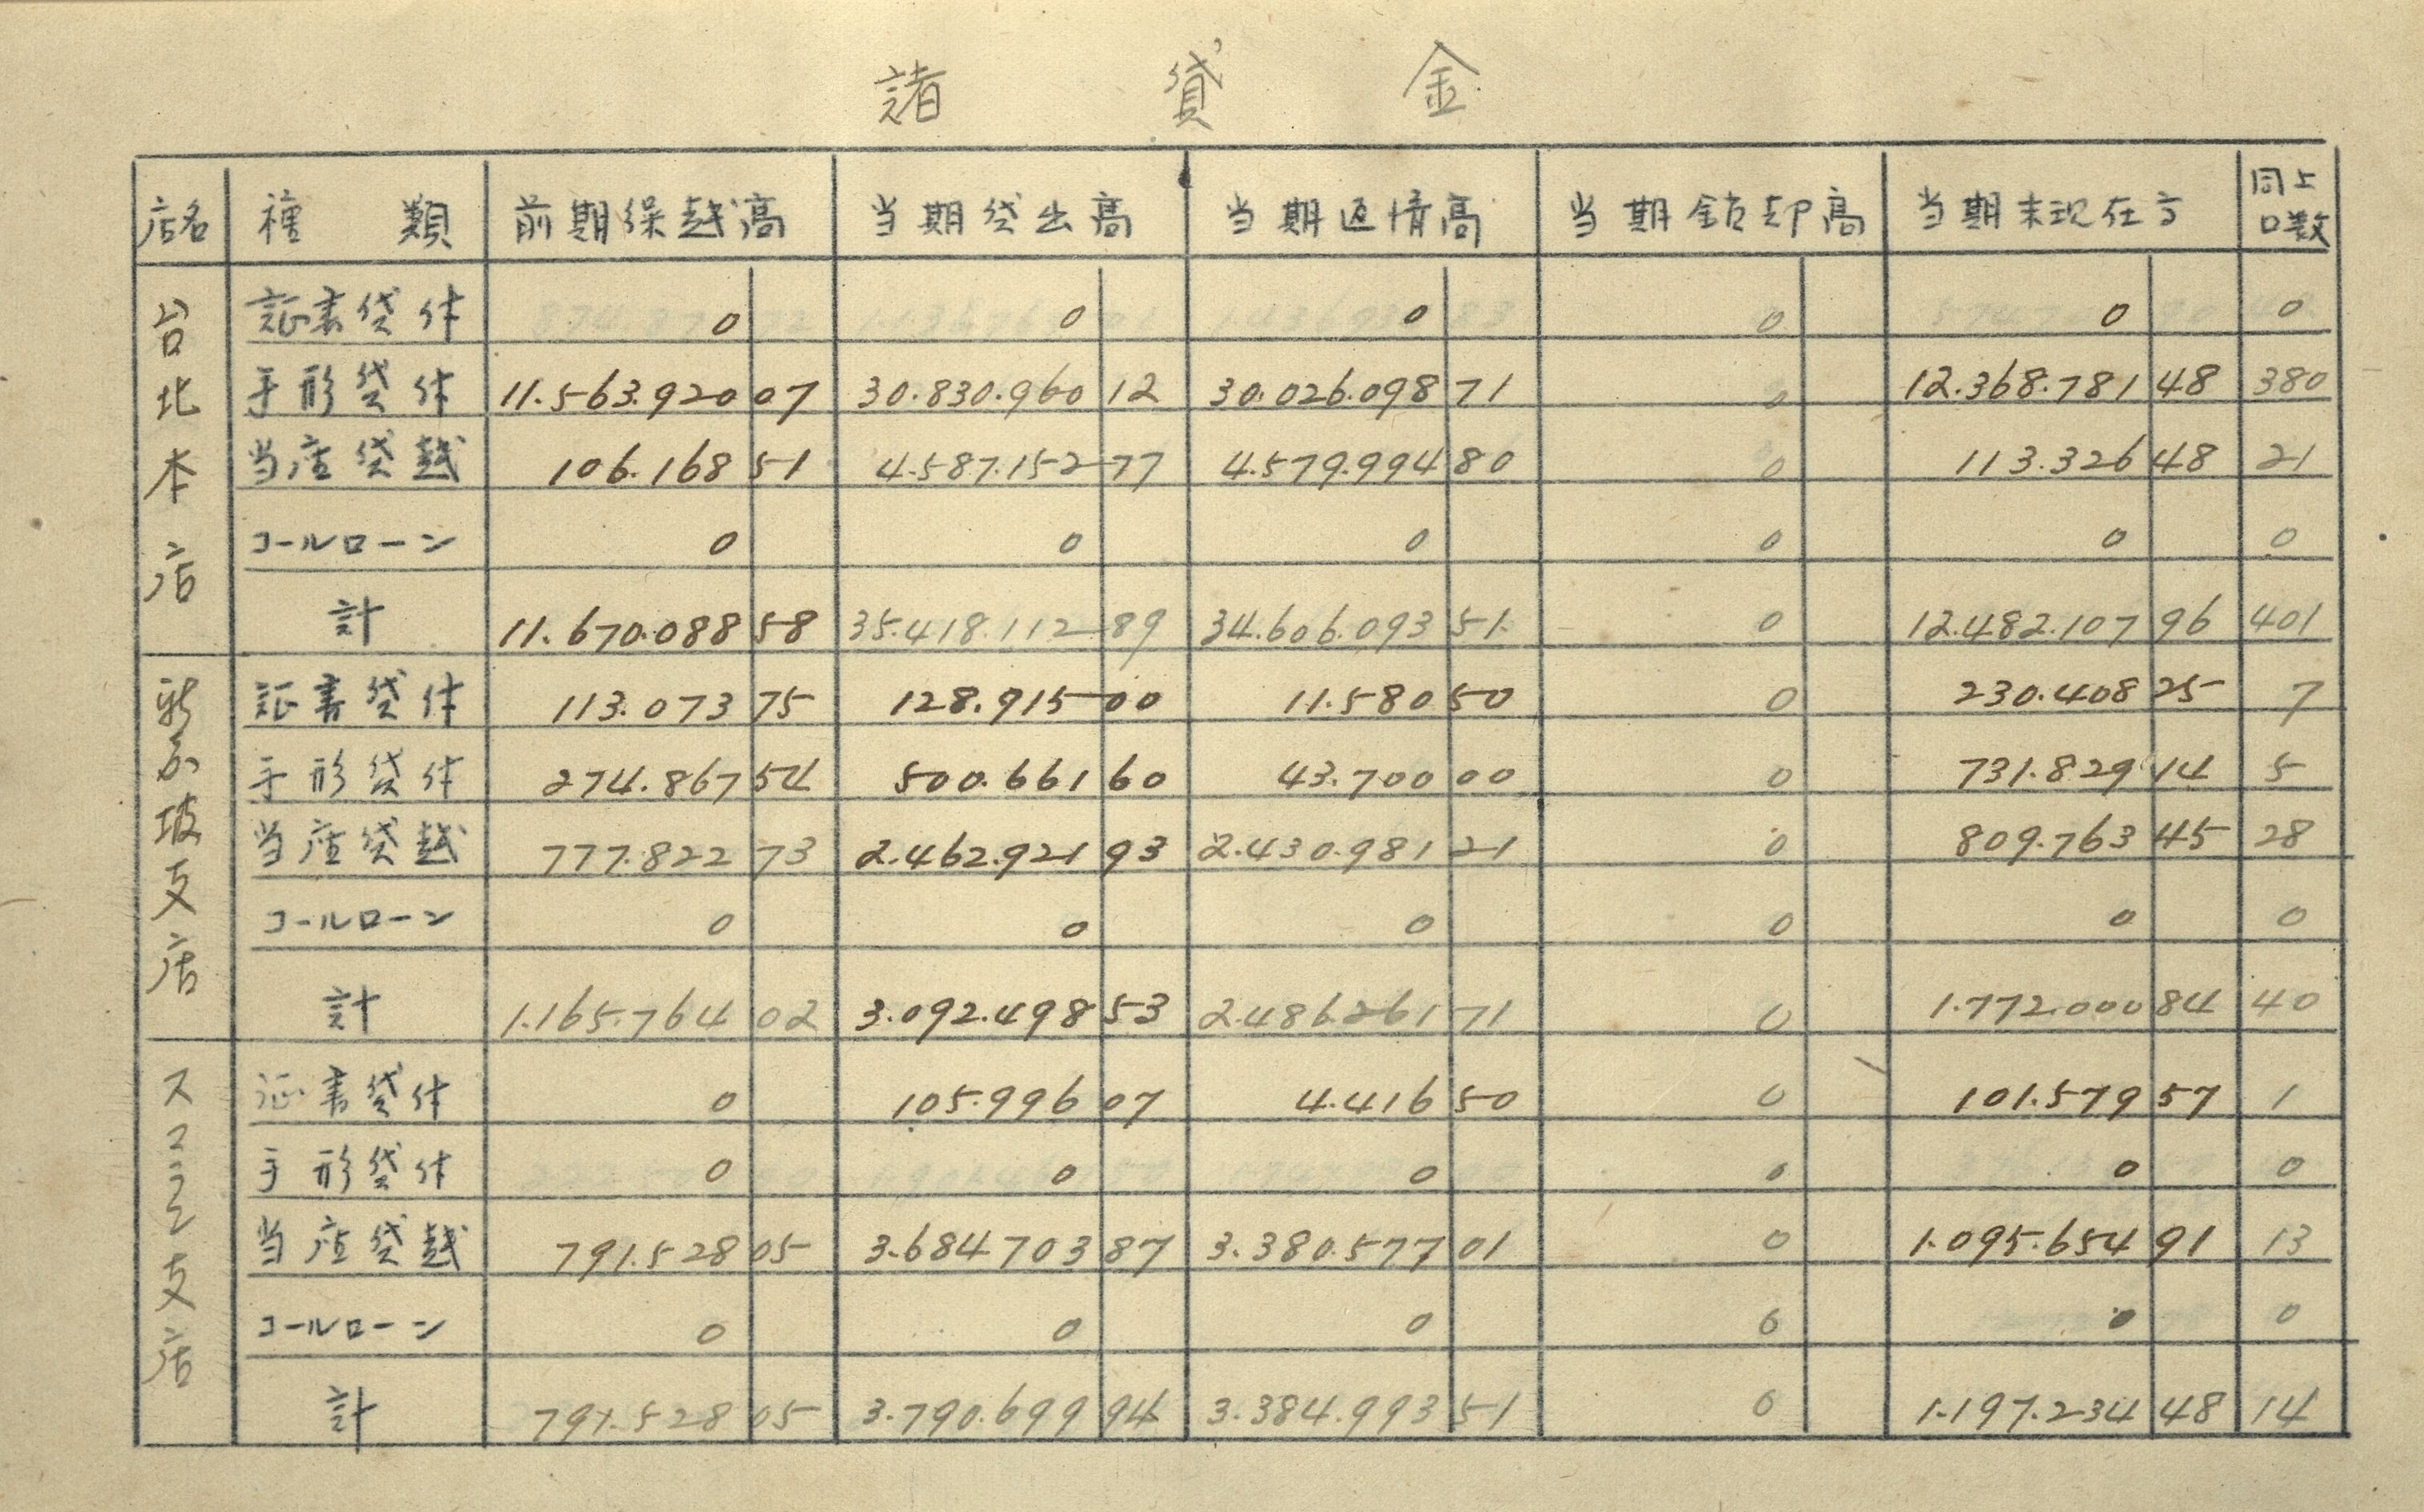 諸貸金
店名 種類 前期繰越高 当期貸出高 当期返済高 当期銷却高 当期末現在高 同上口数
台北本店
証書貸付 0 0 0 0 0 0
手形貸付 11.563.920 07 30.830.960 12 30.026.098 71 0 12.368.781 48 380
当座貸越 106.168 51 4.587.152 77 4.579.994 80 0 113.326 48 21
コールローン 0 0 0 0 0 0
計 11.670.088 58 35.418.112 89 34.606.093 51 0 12.482.107 96 401
新嘉坡支店
証書貸付 113.073 75 128.915 00 11.580 50 0 230.408 25 7
手形貸付 274.867 54 500.661 60 43.700 00 0 731.829 14 5
当座貸越 777.822 73 2.462.921 93 2.430.981 21 0 809.763 45 28
コールローン 0 0 0 0 0 0
計 1.165.764 02 3.092.498 53 2.486.261 71 0 1.772.000 84 40
スマラン支店
証書貸付 0 105.996 07 4.416 50 0 101.579 57 1
手形貸付 0 0 0 0 0 0
当座貸越 791.528 05 3.684703 87 3.380.577 01 0 1.095.654 91 13
コールローン 0 0 0 0 0 0
計 791.528 05 3.790.699 94 3.384.993 51 0 1.197.234 48 14